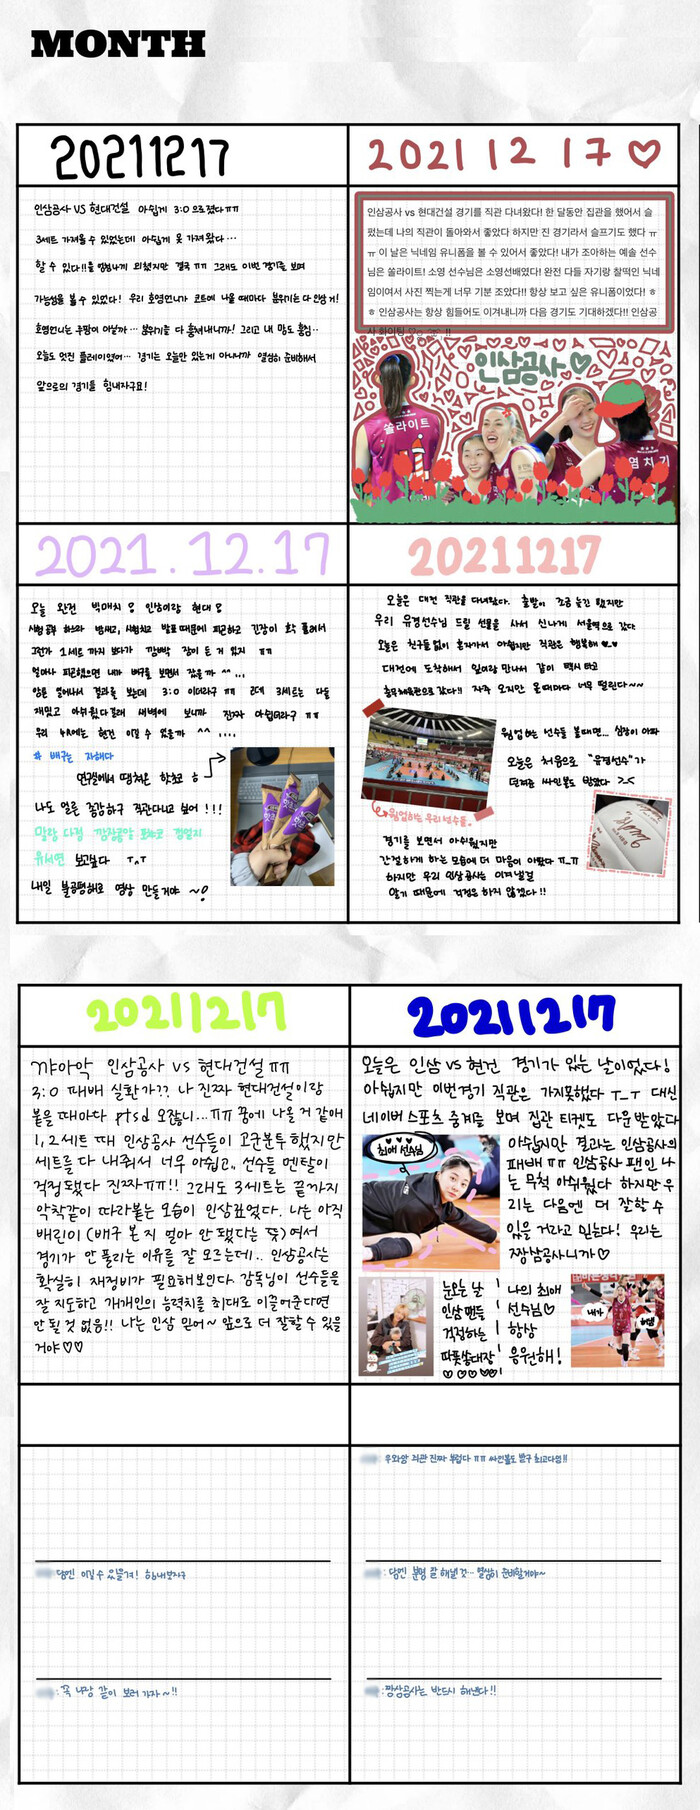 MONTH
20211217
인삼공사 VS 현대건설 아쉽게 3:0 으로졌다ㅠㅠ
3세트 가져올 수 있었는데 아쉽게 못 가져왔다…
할 수 있다!!를 열심나게 외쳤지만 결국 ㅠㅠ 그래도 이번 경기를 보며
가능성을 볼 수 있었다! 우리 호영언니가 코트에 나올 때마다 분위기는 다 인삼 거!
호영언니는 우팡이 아닐까… 분위기를 다 훔쳐내니까! 그리고 내 맘도 훔침..
오늘도 멋진 플레이였어… 경기는 오늘만 있는게 아니니까 열심히 준비해서
앞으로의 경기를 힘내자구요!
2021 12 17 ♡
인삼공사 vs 현대건설 경기를 직관 다녀왔다! 한 달동안 집관을 했어서 슬
펐는데 나의 직관이 돌아와서 좋았다 하지만 진 경기라서 슬프기도 했다 ㅠ
ㅠ 이 날은 닉네임 유니폼을 볼 수 있어서 좋았다! 내가 조아하는 예솔 선수
님은 쏠라이트! 소영 선수님은 소영선배였다! 완전 다들 자기랑 찰떡인 닉네
임이여서 사진 찍는게 너무 기분 조았다!! 항상 보고 싶은 유니폼이었다! ㅎ
ㅎ 인삼공사는 항상 힘들어도 이겨내니까 다음 경기도 기대하겠다!! 인삼공
사 화이팅
인삼공사♡
쏠라이트
염치기
2021.12.17
오늘 완전 빅매치! 인삼이랑 현대!
시험공부 하느라 밤새고, 시험치고 발표 때문에 피곤하고 긴장이 확 풀려서
그런가 1세트 까지 보다가 깜빡 잠이 든 거 있지 ㅠㅠ
얼마나 피곤했으면 내가 배구를 보면서 잤을까 ^^ ....
암튼 일어나서 결과를 봤는데 3:0 이더라구 ㅠㅠ 근데 3세트는 나름
재밌고 아쉬웠다길래 새벽에 보니까 진짜 아쉽더라구 ㅠㅠ
우리 4R에는 현건 이길 수 있을까 ^^ ....
# 배구는 자해다
연구실에서 땡쳐온 핫초코 ㅎ
나도 얼른 종강하구 직관다니고 싶어 !!!
유서연 보고싶다 ㅜ^ㅜ
내일 불공평해로 영상 만들거야 ~!
20211217
오늘은 대전 직관을 다녀왔다. 출발이 조금 늦긴 했지만
우리 유경선수님 드릴 선물을 사서 신나게 서울역으로 갔다
오늘은 친구들없이 혼자가서 아쉽지만 직관은 행복해 ♥_♥
대전에 도착해서 일이랑 만나서 같이 택시 타고
충무체육관으로 갔다!! 자주 오지만 올때마다 너무 떨린다~~
웜업 하는 선수들 볼때면... 심장이 아파
오늘은 처음으로 "유경선수"가
던져준 싸인볼도 받았다 >_<
웜업하는 우리 선수들.
경기를 보면서 아쉬웠지만
간절하게 하는 모습에 더 마음이 아팠다 ㅠ_ㅠ
하지만 우리 인삼공사는 이겨낼걸
알기 때문에 걱정은 하지 않겠다!!
20211217
꺄아악 인삼공사 vs 현대건설ㅠㅠ
3:0 패배 실환가?? 나 진짜 현대건설이랑
붙을 때마다 ptsd 오잖니...ㅠㅠ 꿈에 나올 거 같애
1, 2세트 때 인삼공사 선수들이 고군분투 했지만
세트를 다 내줘서 너무 아쉽고.. 선수들 멘탈이
걱정됐다 진짜ㅠㅠ!! 그래도 3세트는 끝까지
악착같이 따라붙는 모습이 인상깊었다. 나는 아직
배린이 (배구 본 지 얼마 안 됐다는 뜻)여서
경기가 안 풀리는 이유를 잘 모르는데.. 인삼공사는
확실히 재정비가 필요해보인다. 감독님이 선수들을
잘 지도하고 개개인의 능력치를 최대로 이끌어준다면
안 될 것 없음!! 나는 인삼 믿어~ 앞으로 더 잘할 수 있을
거야♡♡
20211217
오늘은 인삼 vs 현건 경기가 있는 날이었다!
아쉽지만 이번경기 직관은 가지못했다 ㅜ_ㅜ 대신
네이버 스포츠 중계를 보며 집관 티켓도 다운받았다
최애 선수님
아쉽지만 결과는 인삼공사의
패배 ㅠㅠ 인삼공사 팬인 나
는 무척 아쉬웠다 하지만 우
리는 다음엔 더 잘할 수
있을 거라고 믿는다! 우리는
짱삼공사니까♡
눈오는 날
인삼 팬들
걱정하는
따뜻쏠대장
♡♡♡♡♡
나의 최애
선수님♡
항상
응원해!
내가
해냄
: 우와앙 직관 진짜 부럽다 ㅠㅠ 싸인볼도 받구 최고다잉!!
: 담엔 이길 수 있을겨! 힘내보자구
: 담엔 분명 잘 해낼 것… 열심히 준비할거야~
: 꼭 나랑 같이 보러 가자~!!
: 짱삼공사는 반드시 해낸다!!